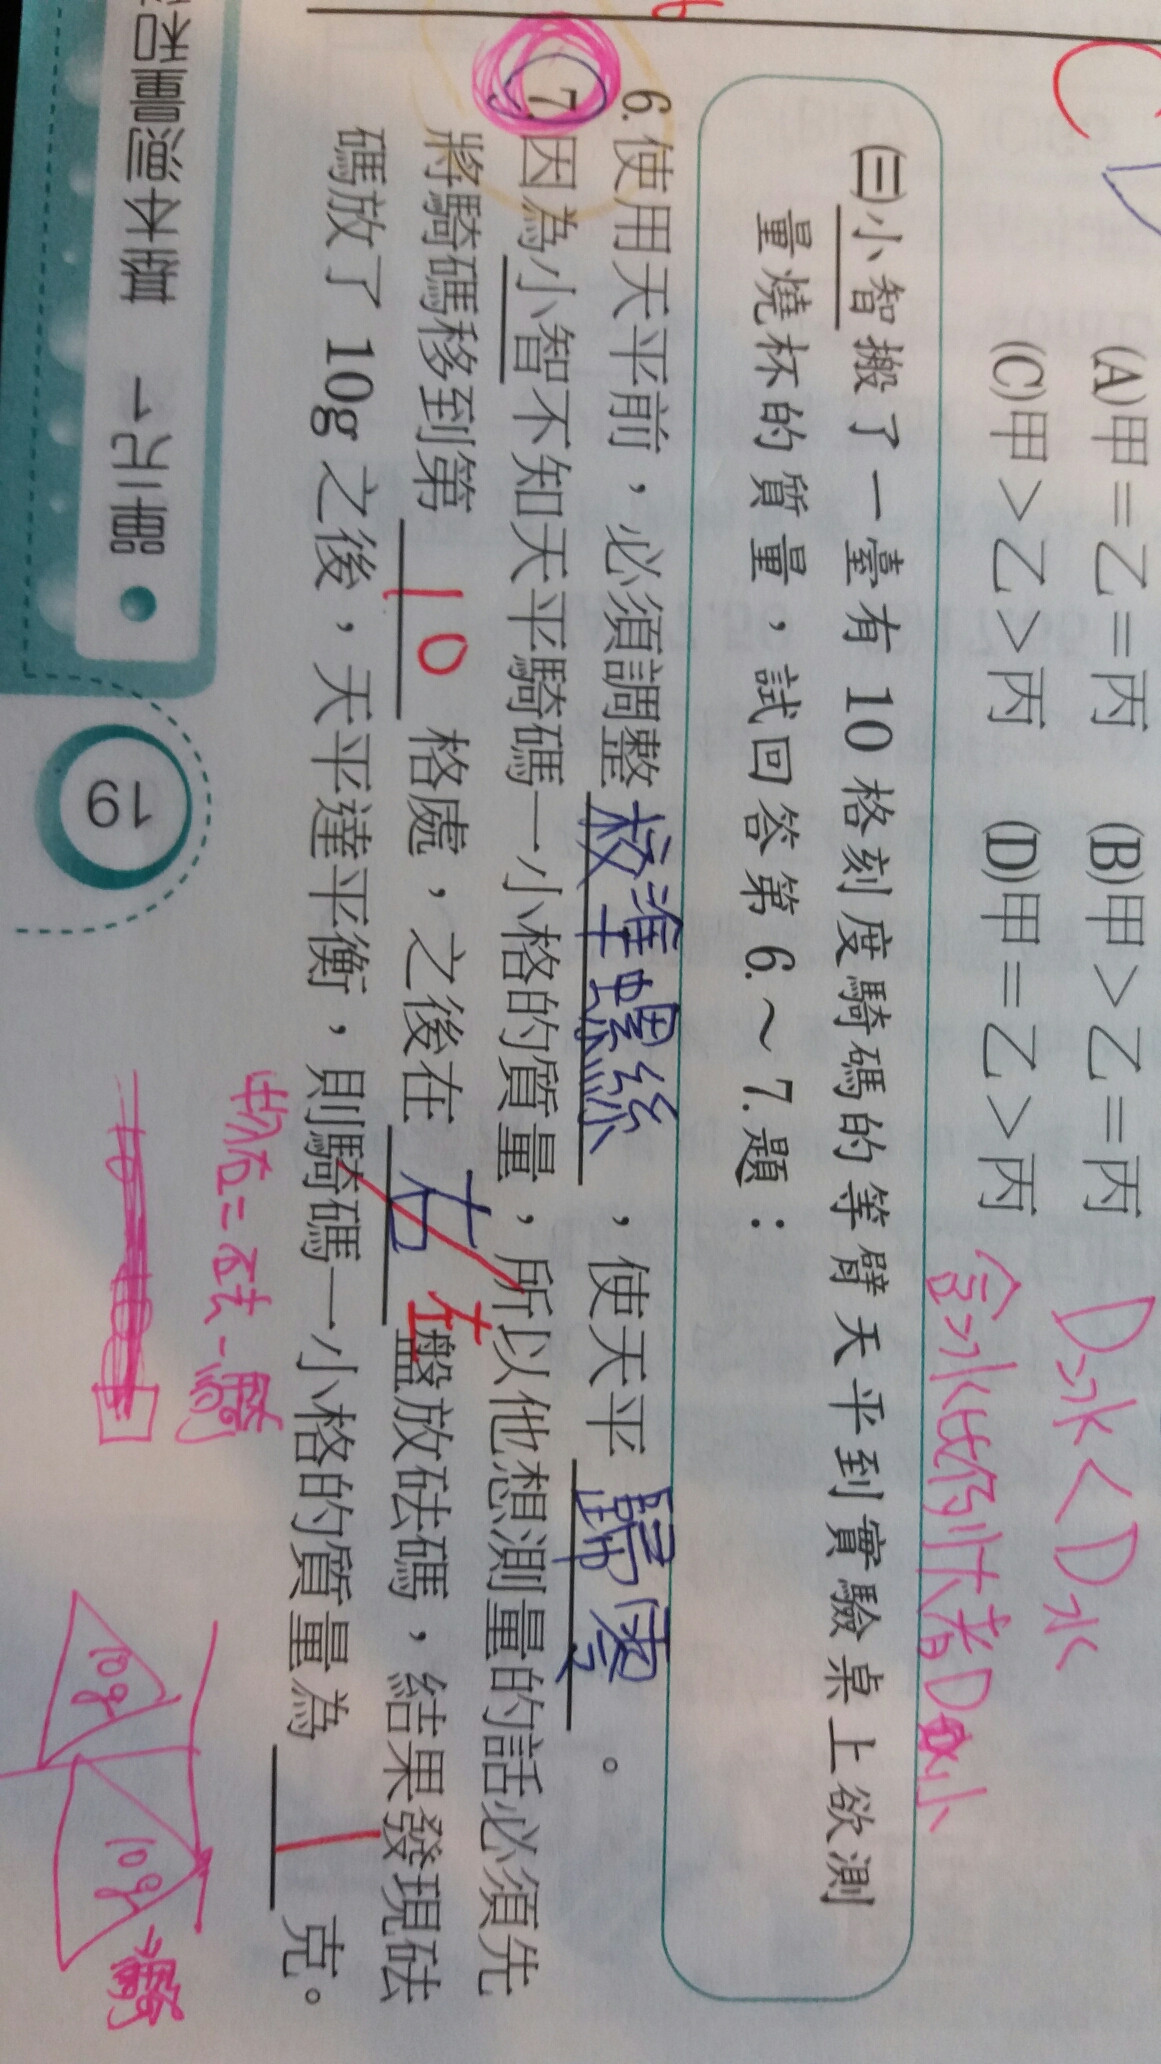 (A)甲=乙=丙 (B)甲>乙=丙
(C)甲>乙>丙 (D)甲=乙>丙
D冰<D水
含冰比例大者D越小
㈢小智搬了一臺有 10 格刻度騎碼的等臂天平到實驗桌上欲測
量燒杯的質量,試回答第 6.~7.題:
6.使用天平前,必須調整校準螺絲,使天平歸零。
7.因為小智不知天平騎碼一小格的質量,所以他想測量的話必須先
將騎碼移到第 10 格處,之後在 右 左 盤放砝碼,結果發現砝
碼放了 10g 之後,天平達平衡,則騎碼一小格的質量為 1 克。
物右=砝-騎
10g
10g→騎
單元 1 基本測量和
19